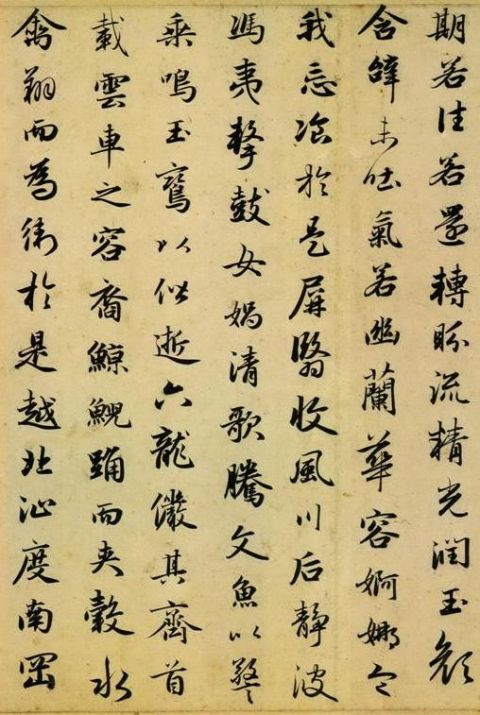 期若往若還轉眄流精光潤玉顏
含辭未吐氣若幽蘭華容婀娜令
我忘飡於是屏翳收風川后靜波
馮夷擊鼓女媧清歌騰文魚以警
乘鳴玉鸞以偕逝六龍儼其齊首
載雲車之容裔鯨鯢踊而夾轂水
禽翔而為衛於是越北沚度南岡